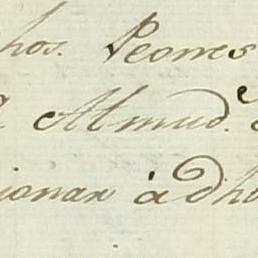 hos. Peones
Almud.
ionar à dho